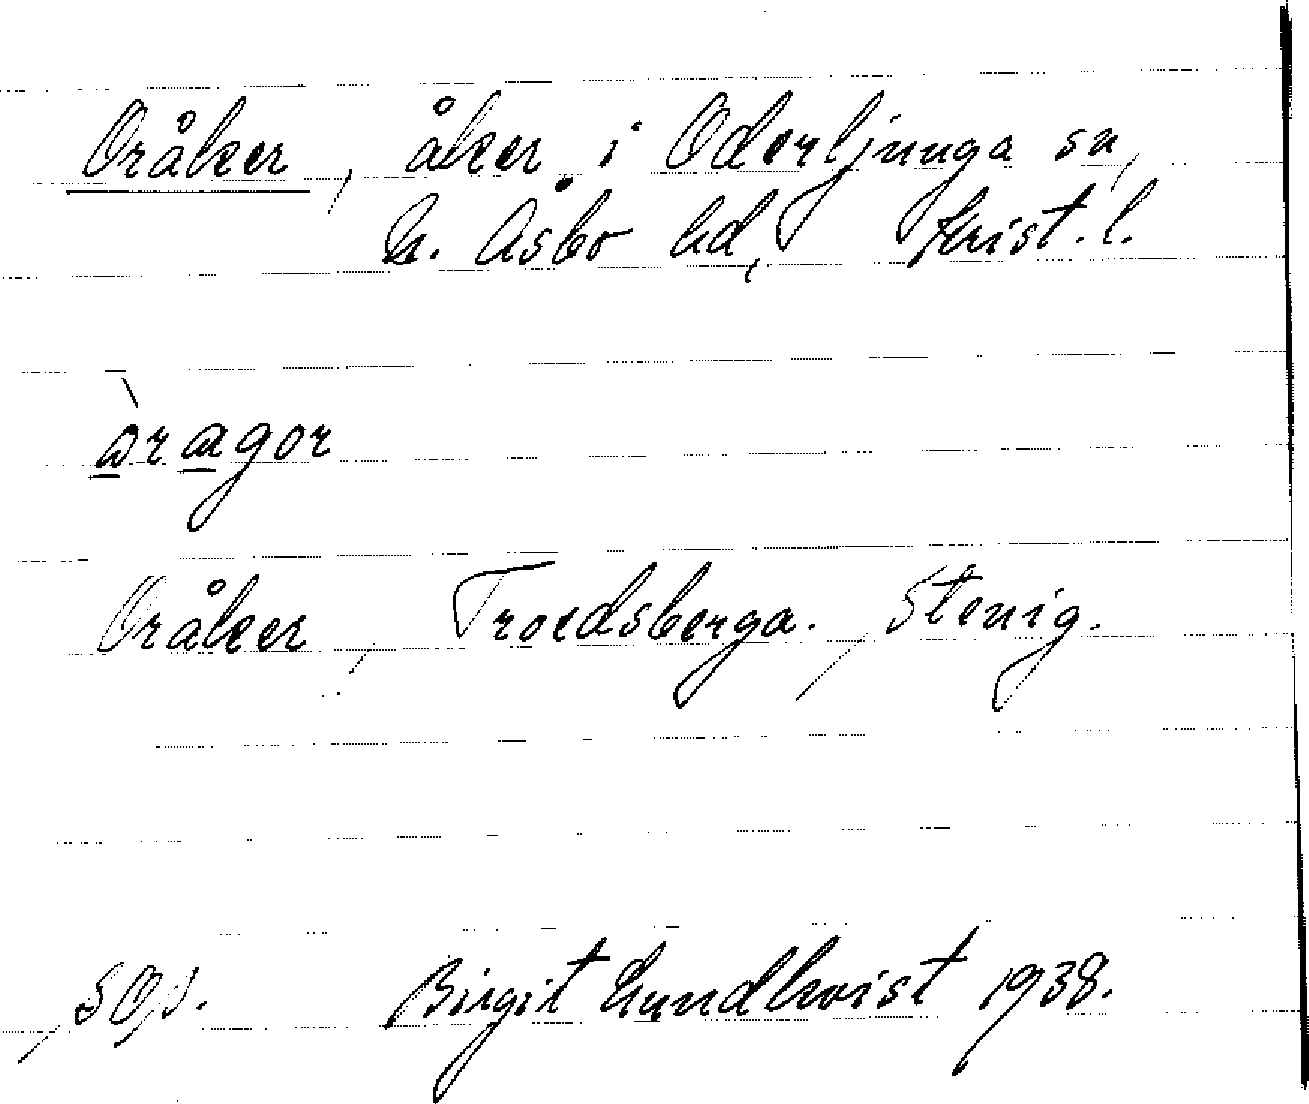 Oråker, åker i Oderljunga sn,
N. Åsbo hd, Krist. l.
àragor
Oråker, Troedsberga. Stenig.
Birgit Lundkvist 1938.